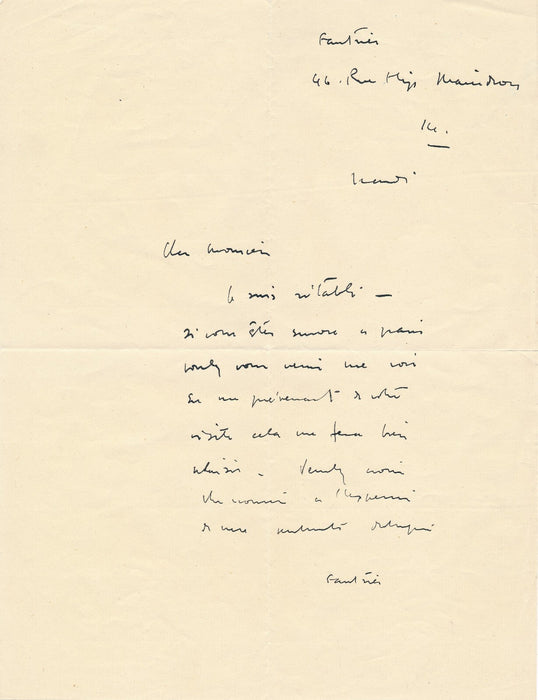 Fautrier
46 Rue Hipp Maindron
14.
Mardi
Cher monsieur
Je suis rétabli —
si vous êtes encore à paris
voulez vous venir me voir
en me prévenant de votre
visite cela me fera bien
plaisir. Veuillez croire
cher monsieur à l'expression
de mes sentiments distingués
Fautrier